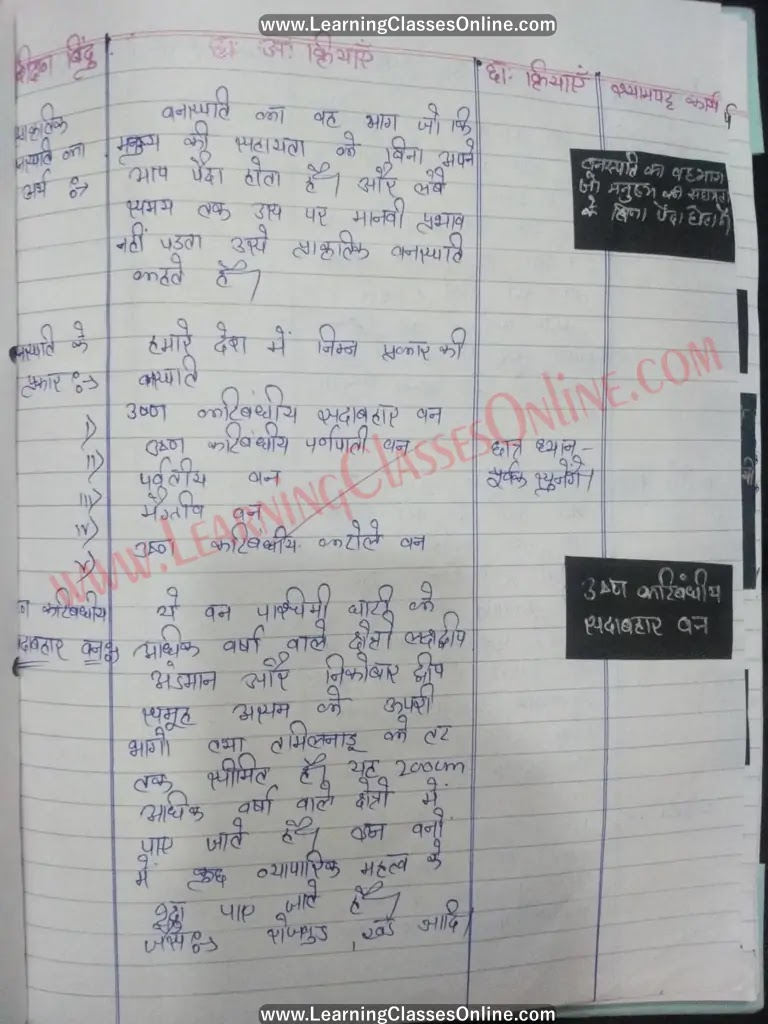 www.LearningClassesOnline.com
शिक्षण बिंदु
छा. अ. क्रियाएँ
छा. क्रियाएँ
श्यामपट्ट कार्य
प्राकृतिक
वनस्पति का
अर्थ :→
वनास्पति का वह भाग जो कि
मनुष्य की सहायता के बिना अपने
आप पैदा होता है। और लंबे
समय तक उस पर मानवी प्रभाव
नहीं पडता उसे प्राकृतिक वनस्पति
कहते है।
वनस्पति का वह भाग
जो मनुष्य की सहायता
के बिना पैदा होता है
वनस्पति के
प्रकार :→
हमारे देश में निम्न प्रकार की
वनस्पति
i) उष्ण कटिबंधीय सदाबहार वन
ii) उष्ण कटिबंधीय पर्णपाती वन
iii) पर्वतीय वन
iv) मैंग्रोव वन
v) उष्ण कटिबंधीय कटीले वन
छात्र ध्यान-
पूर्वक सुनेंगे।
कटिबंधीय
सदाबहार वन
ये वन पाश्चिमी घाटी के
आधिक वर्षा वाले क्षेत्रो लक्षद्वीप
अंडमान और निकोबार द्वीप
समूह असम के ऊपरी
भागो तथा तमिलनाडू के तट
तक सीमित है। यह 200cm
आधिक वर्षा वाले क्षेत्रो में
पाए जाते है। इन वनों
में कुछ व्यापारिक महत्व के
वृक्ष पाए जाते है।
जैसे :→ रोजवुड, रबड आदि।
उष्ण कटिबंधीय
सदाबहार वन
www.LearningClassesOnline.com
www.LearningClassesOnline.com